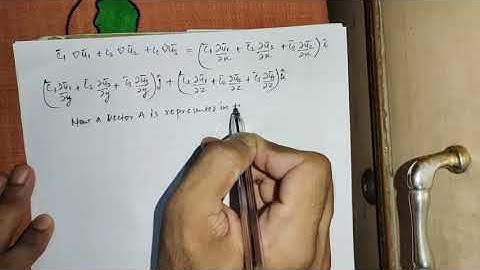 c̄₁ ∇ū₁ + c̄₂ ∇ū₂ + c̄₃ ∇ū₃ = (c̄₁ ∂ū₁/∂x + c̄₂ ∂ū₂/∂x + c̄₃ ∂ū₃/∂x) î
(c̄₁ ∂ū₁/∂y + c̄₂ ∂ū₂/∂y + c̄₃ ∂ū₃/∂y) ĵ + (c̄₁ ∂ū₁/∂z + c̄₂ ∂ū₂/∂z + c̄₃ ∂ū₃/∂z) k̂
Now a vector A is represented in